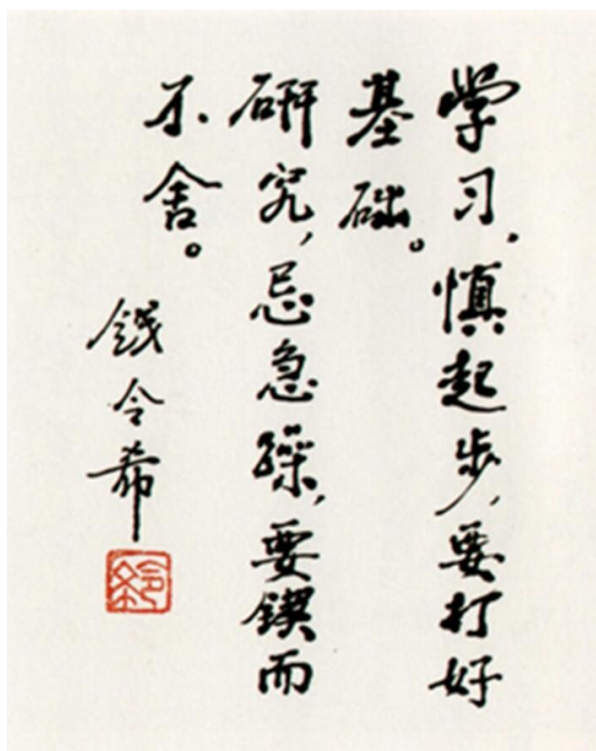 学习，慎起步，要打好
基础。
研究，忌急躁，要锲而
不舍。
钱令希